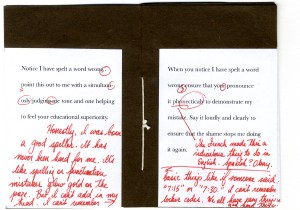 Notice I have spelt a word wrong,
point this out to me with a simultan
only judging tone and one helping
to feel your educational superiority.
Honestly, I was born
a good speller. It has
never been hard for me. It's
like spelling or punctuation
mistakes glow gold on the
page. But I can't add in my
head. I can't remember →
When you notice I have spelt a word
wrong ensure that you pronounce
it phonetically to demonstrate my
mistake. Say it loudly and clearly to
ensure that the shame stops me doing
it again.
The French made this a
ridiculous thing to do in
English.
Basic things like if someone said
"7:15" or "7:30." I can't remember
before codes. We all have